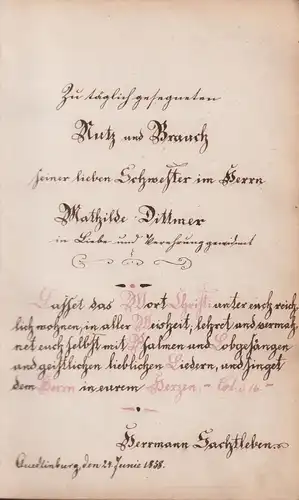 Zu täglich gesegneten
Nutz und Brauch
seiner lieben Schwester im Herrn
Mathilde Dittmer
in Liebe und Verehrung gewidmet
Lasset das Wort Christi unter euch reich-
lich wohnen, in aller Weisheit, lehret und vermah-
net euch selbst mit Psalmen und Lobgesängen
und geistlichen lieblichen Liedern, und singet
dem Herrn in eurem Herzen. – Col. 3, 16 –
Herrmann Sachtleben.
Quedlinburg, den 29 Junie 1858.